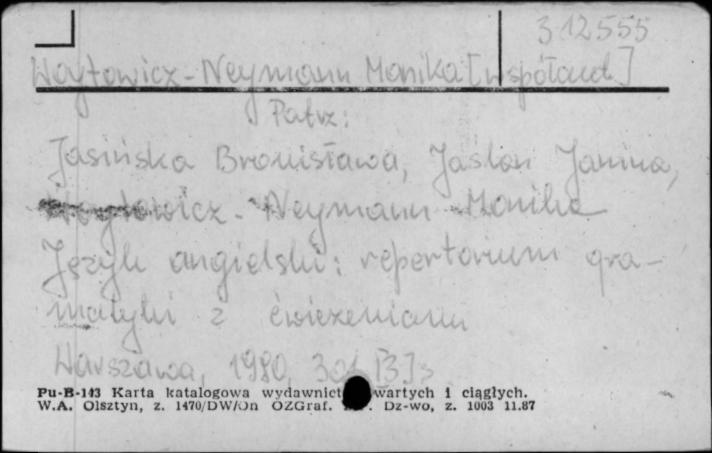 312555
Woytowicz-Neymann Monika [współaut.]
Patrz:
Jasińska Bronisława, Jaslan Janina,
Woytowicz-Neymann Monika
Język angielski: repertorium gra-
matyki z ćwiczeniami
Warszawa, 1980, 301 [3] s
Pu-B-143 Karta katalogowa wydawnict wartych i ciągłych.
W.A. Olsztyn, z. 1470/DW/On OZGraf. Dz-wo, z. 1003 11.87